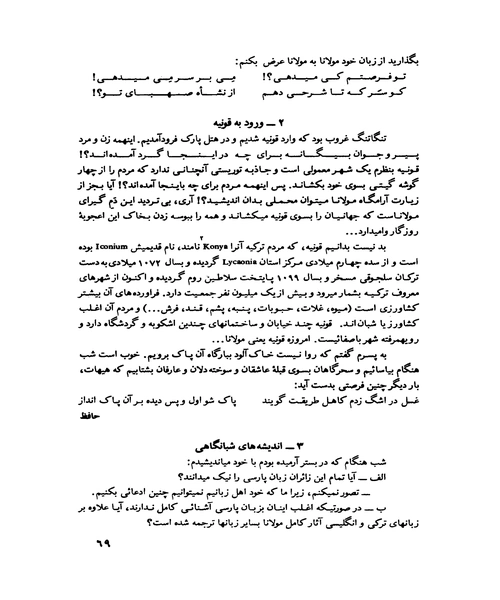 بگذارید از زبان خود مولانا به مولانا عرض بکنم:
تو فرصتم کی میدهی؟! می بر سر می میدهی!
کو سَر که تا شرحی دهم از نشأه صهبای تو؟!
۲ ــ ورود به قونیه
تنگاتنگ غروب بود که وارد قونیه شدیم و در هتل پارک فرودآمدیم. اینهمه زن و مرد
پیر و جوان بیگانه برای چه در اینجا گرد آمده‌اند؟!
قونیه بنظرم یک شهر معمولی است و جاذبه توریستی آنچنانی ندارد که مردم را از چهار
گوشه گیتی بسوی خود بکشاند. پس اینهمه مردم برای چه باینجا آمده‌اند؟! آیا بجز از
زیارت آرامگاه مولانا میتوان محملی بدان اندیشید؟! آری، بی‌تردید این دَم گیرای
مولاناست که جهانیان را بسوی قونیه میکشاند و همه را ببوسه زدن بخاک این اعجوبهٔ
روزگار وامیدارد...
بد نیست بدانیم قونیه، که مردم ترکیه آنرا Konya۲ نامند، نام قدیمیش Iconium بوده
است و از سده چهارم میلادی مرکز استان Lycaonia گردیده و بسال ۱۰۷۲ میلادی به دست
ترکان سلجوقی مسخر و بسال ۱۰۹۹ پایتخت سلاطین روم گردیده و اکنون از شهرهای
معروف ترکیه بشمار میرود و بیش از یک میلیون نفر جمعیت دارد. فراورده‌های آن بیشتر
کشاورزی است (میوه، غلات، حبوبات، پنبه، پشم، قند، فرش...) و مردم آن اغلب
کشاورز یا شبان‌اند. قونیه چند خیابان و ساختمانهای چندین اشکوبه و گردشگاه دارد و
رویهمرفته شهر باصفائیست. امروزه قونیه یعنی مولانا...
به پسرم گفتم که روا نیست خاک‌آلود ببارگاه آن پاک برویم. خوب است شب
هنگام بیاسائیم و سحرگاهان بسوی قبلهٔ عاشقان و سوخته‌دلان و عارفان بشتابیم که هیهات،
بار دیگر چنین فرصتی بدست آید:
غسل در اشگ زدم کاهل طریقت گویند پاک شو اول و پس دیده بر آن پاک انداز
حافظ
۳ ــ اندیشه‌های شبانگاهی
شب هنگام که در بستر آرمیده بودم با خود میاندیشیدم:
الف ــ آیا تمام این زائران زبان پارسی را نیک میدانند؟
ــ تصور نمیکنم، زیرا ما که خود اهل زبانیم نمیتوانیم چنین ادعائی بکنیم.
ب ــ در صورتیکه اغلب اینان بزبان پارسی آشنائی کامل ندارند، آیا علاوه بر
زبانهای ترکی و انگلیسی آثار کامل مولانا بسایر زبانها ترجمه شده است؟
۶۹